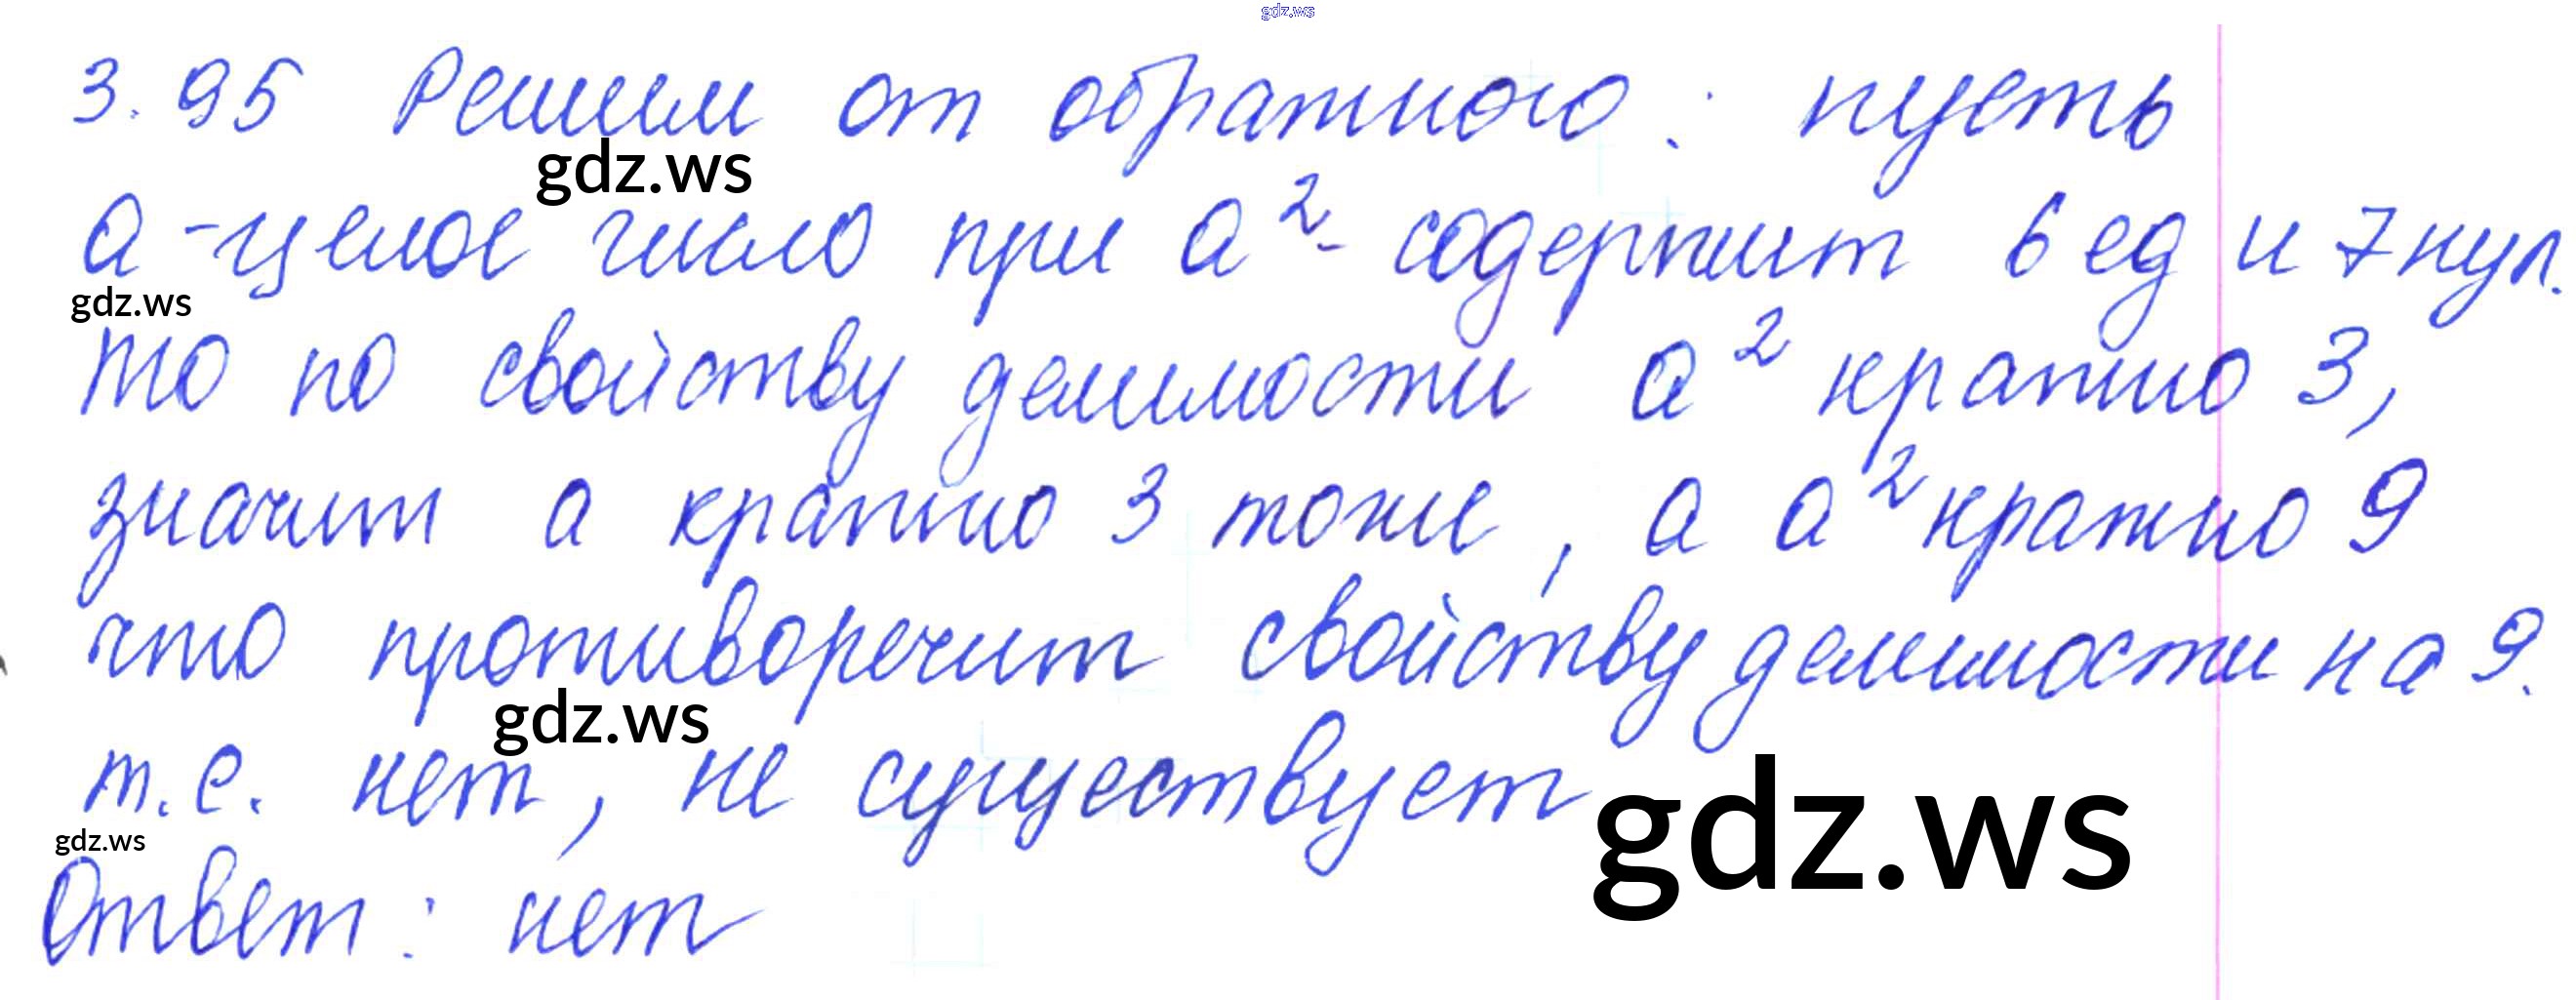 gdz.ws
3.95 Решим от обратного: пусть
gdz.ws
а - целое число при а² - содержит 6 ед и 7 нул.
gdz.ws
то по свойству делимости а² кратно 3,
значит а кратно 3 тоже, а а² кратно 9
что противоречит свойству делимости на 9.
gdz.ws
т.е. нет, не существует
gdz.ws
gdz.ws
Ответ: нет